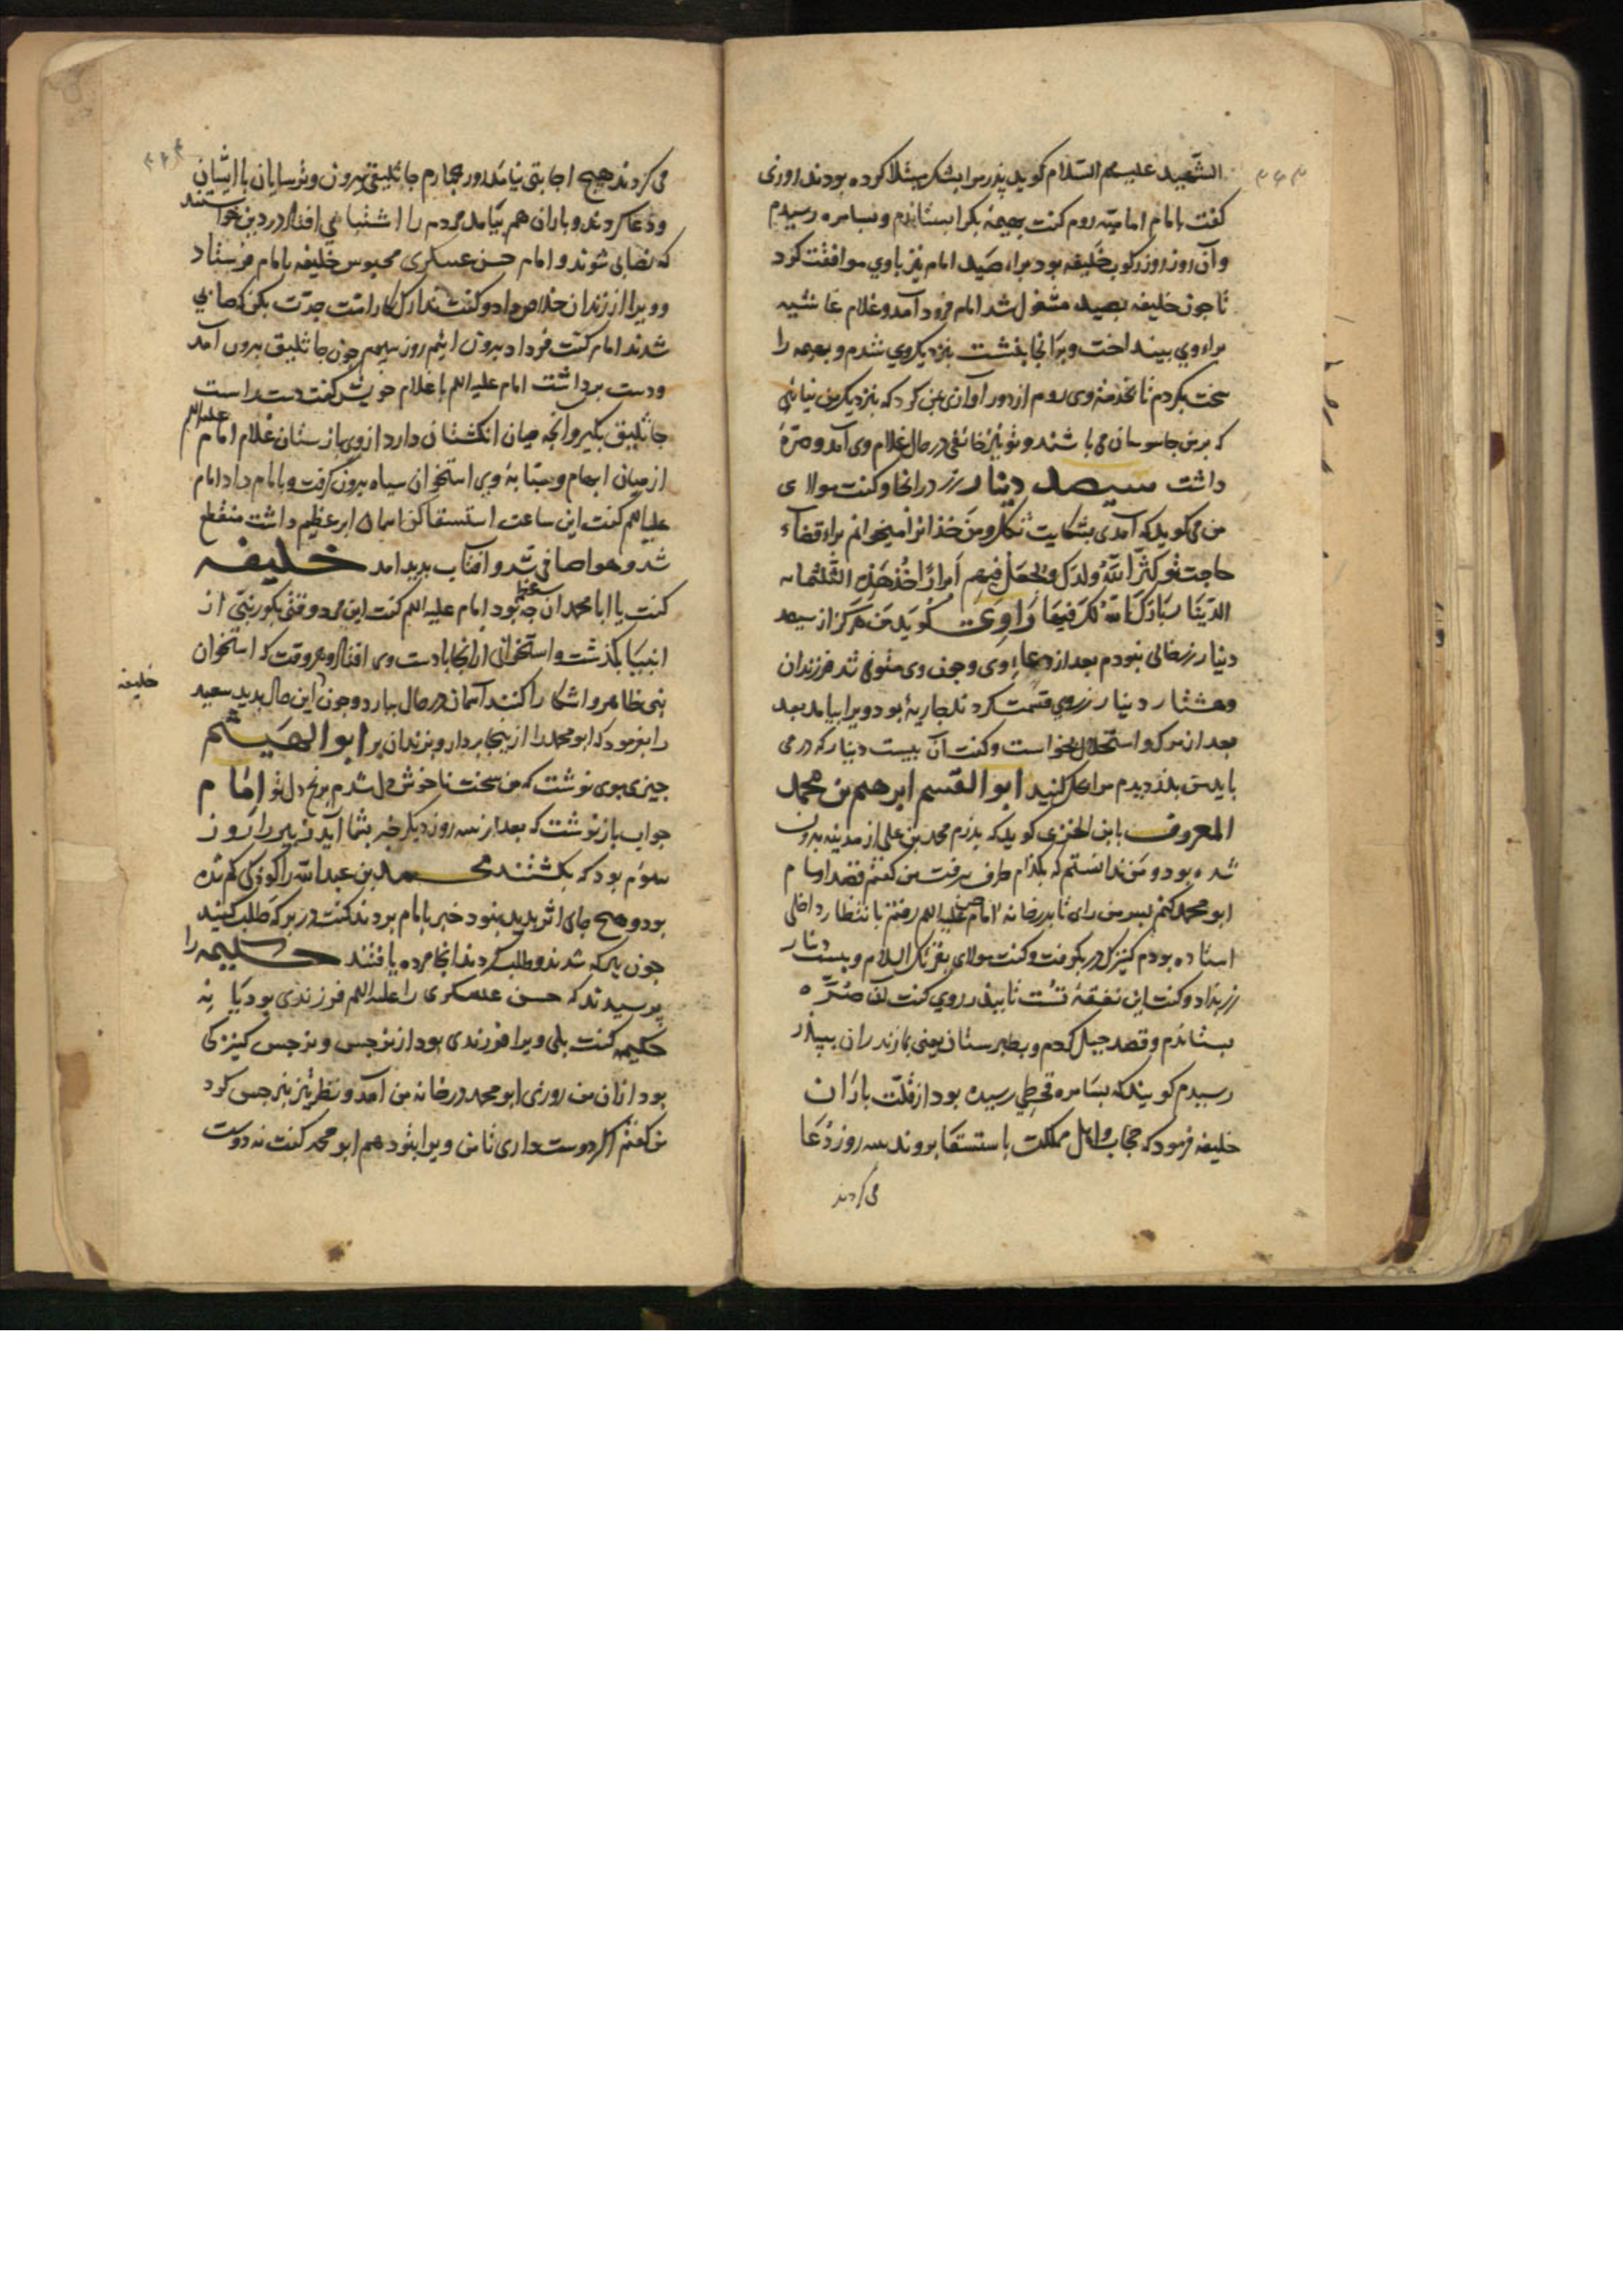 ۳۴۳
الشهید علیهم السلام کوید پدر مرا بشکر مبتلا کرده بودند روزی
کفت بامام امامیه روم کفت بهیمهٔ بکرا بستاندم و بسامره رسیدم
وآن روز روز رکوب خلیفه بود براء صید امام نیز باوی موافقت کرد
تا جون خلیفه بصید مشغول شد امام فرود آمد و غلام غاشیه
براء وی بینداخت و برانجا بنشست بنزدیک وی شدم و بهیمه را
سخت بکردم تا بخدمة وی روم از دور اوازی بمن کرد که بنزدیک من نیائی
که برمن جاسوسان می باشند و تو نیز خائفی در حال غلام وی آمد و صرّهٔ
داشت سیصد دینار زر درانجا و کفت مولای
من می کوید که آمدی بشکایت و من خذانرا میخوانم براء قضاء
حاجت تو کثّر الله ولدک وجعل فیهم ابرارا خذ هذه الثلثمائه
الدّینار بارک الله لک فیها راوی کوید من هرکز از سیصد
دینار زر خالی نبودم بعد از دعاء وی و جون وی متوفی شد فرزندان
وهشتار دینار زر وی قسمت کردند جاریهٔ بود ویرا بیامد بعد
بعد از مرک و استحلال بخواست و کفت آن بیست دینار که در می
بایست بدزدیدم مرا حلال کنید ابو القسم ابرهیم بن محمد
المعروف بابن الخزری کوید که پدرم محمد بن علی از مدینه بیرون
شده بود و من ندانستم که بکدام طرف برفت من کفتم قصد امام
ابو محمد کنم بسر من رای تا بدر خانه امام حسن علیه السلم رفتم بانتظار داخلی
استاده بودم کنیزک در بکوفت و کفت مولای یقرئک السلام و بیست دینار
زر بداد و کفت این نفقهٔ تست تا بپدر روی کفت آن صرّه
بستاندم و قصد جبل کردم و بطبرستان یعنی بمازندران بپدر
رسیدم کویند که بسامره قحطی رسیده بود از قلّت باران
خلیفه فرمود که حجاب و اهل مملکت باستسقا بروند سه روز دعا
می کردند
۳۴۴
می کردند هیج اجابتی نیامد روز جهارم جاثلیق بیرون و ترسایان با ایشان
ودعا کردند و باران هم بیامد مردم را اشتباهی افتاد در دین خواستند
که نصابی شوند و امام حسن عسکری محبوس خلیفه بامام فرستاد
وویرا از زندان خلاص داد و کفت تدارک کار امّت جدّت بکن که صابی
شدند امام کفت فردا بیرون ایم روز سیم جون جاثلیق بیرون آمد
ودست برداشت امام علیه السلم با غلام خویش کفت دست راست
جاثلیق بکیر و آنجه میان انکشتان دارد از وی بازستان غلام امام علیه السلم
از میان ابهام و سبّابهٔ وی استخوان سیاه بیرون کرفت و بامام داد امام
علیه السلم کفت این ساعت استسقا کن اسمان ابر عظیم داشت منقطع
شد و هوا صافی شد و آفتاب بدید امد خلیفه
کفت یا ابا محمد ان جه بود امام علیه السلم کفت این مرد وقتی بکور نبیّ از
انبیا بکذشت و استخوانی از انجا بادست وی افتاد و هر وقت که استخوان
نبی ظاهر و اشکارا کنند آسمان در حال ببارد و جون این حال بدید سعید
خلیفه
را بفرمود که ابو محمد را از ینجا بردار و بزندان بر ابو الهیثم
جیزی بوی نوشت که من سخت ناخوش دل شدم برنج دل تو امام
جواب بازنوشت که بعد از سه روز دیکر خبر بشما آید زبیر را روز
سوّم بود که بکشتند محمد بن عبد الله را کوذکی کم شده
بود و هیج جای اثر بدید نبود خبر بامام بردند کفت در برکه طلب کنید
جون ببرکه شدند و طلب کردند انجا مرده یافتند حکیمه را
پرسیدند که حسن عسکری را علیه السلم فرزندی بود یا نه
حکیمه کفت بلی ویرا فرزندی بود از نرجس و نرجس کنیزکی
بود ازان من روزی ابو محمد در خانه من آمد و نظر تیز بنرجس کرد
من کفتم اکر دوست داری تا من ویرا بتو دهم ابو محمد کفت نه دوست